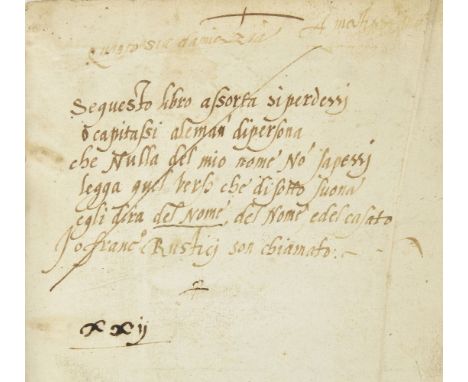 Sequesto libro assorta si perdessi
o capitassi aleman dipersona
che Nulla del mio nome Nō sapessi
legga quel verso che disotto suona
egli dira del Nome, del Nome edel casato
Jo franc.º Rustici son chiamato
xxij